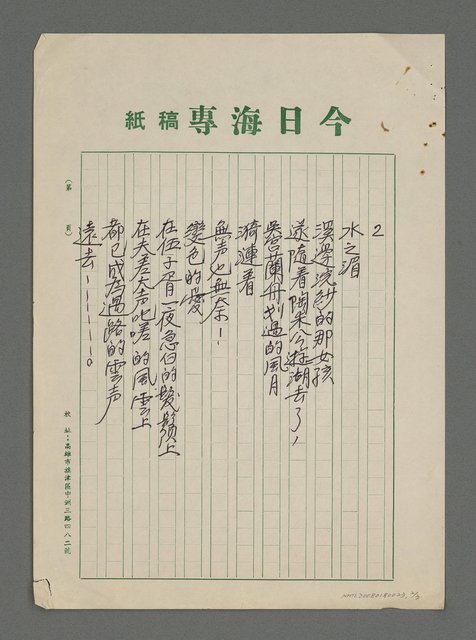 今日海專稿紙
2
水之湄
溪邊浣紗的那女孩
遂隨着陶朱公遊湖去了，
昔日蘭舟划過的風月
漪漣着
無声也無奈！
變色的愛
在伍子胥一夜急白的髮鬚上
在夫差大声叱嗟的風雲上
都已成為過路的雲声
遠去————————。
（第　頁）
校址：高雄市旗津區中洲三路四八二號
NMTL20080180023, 2/2